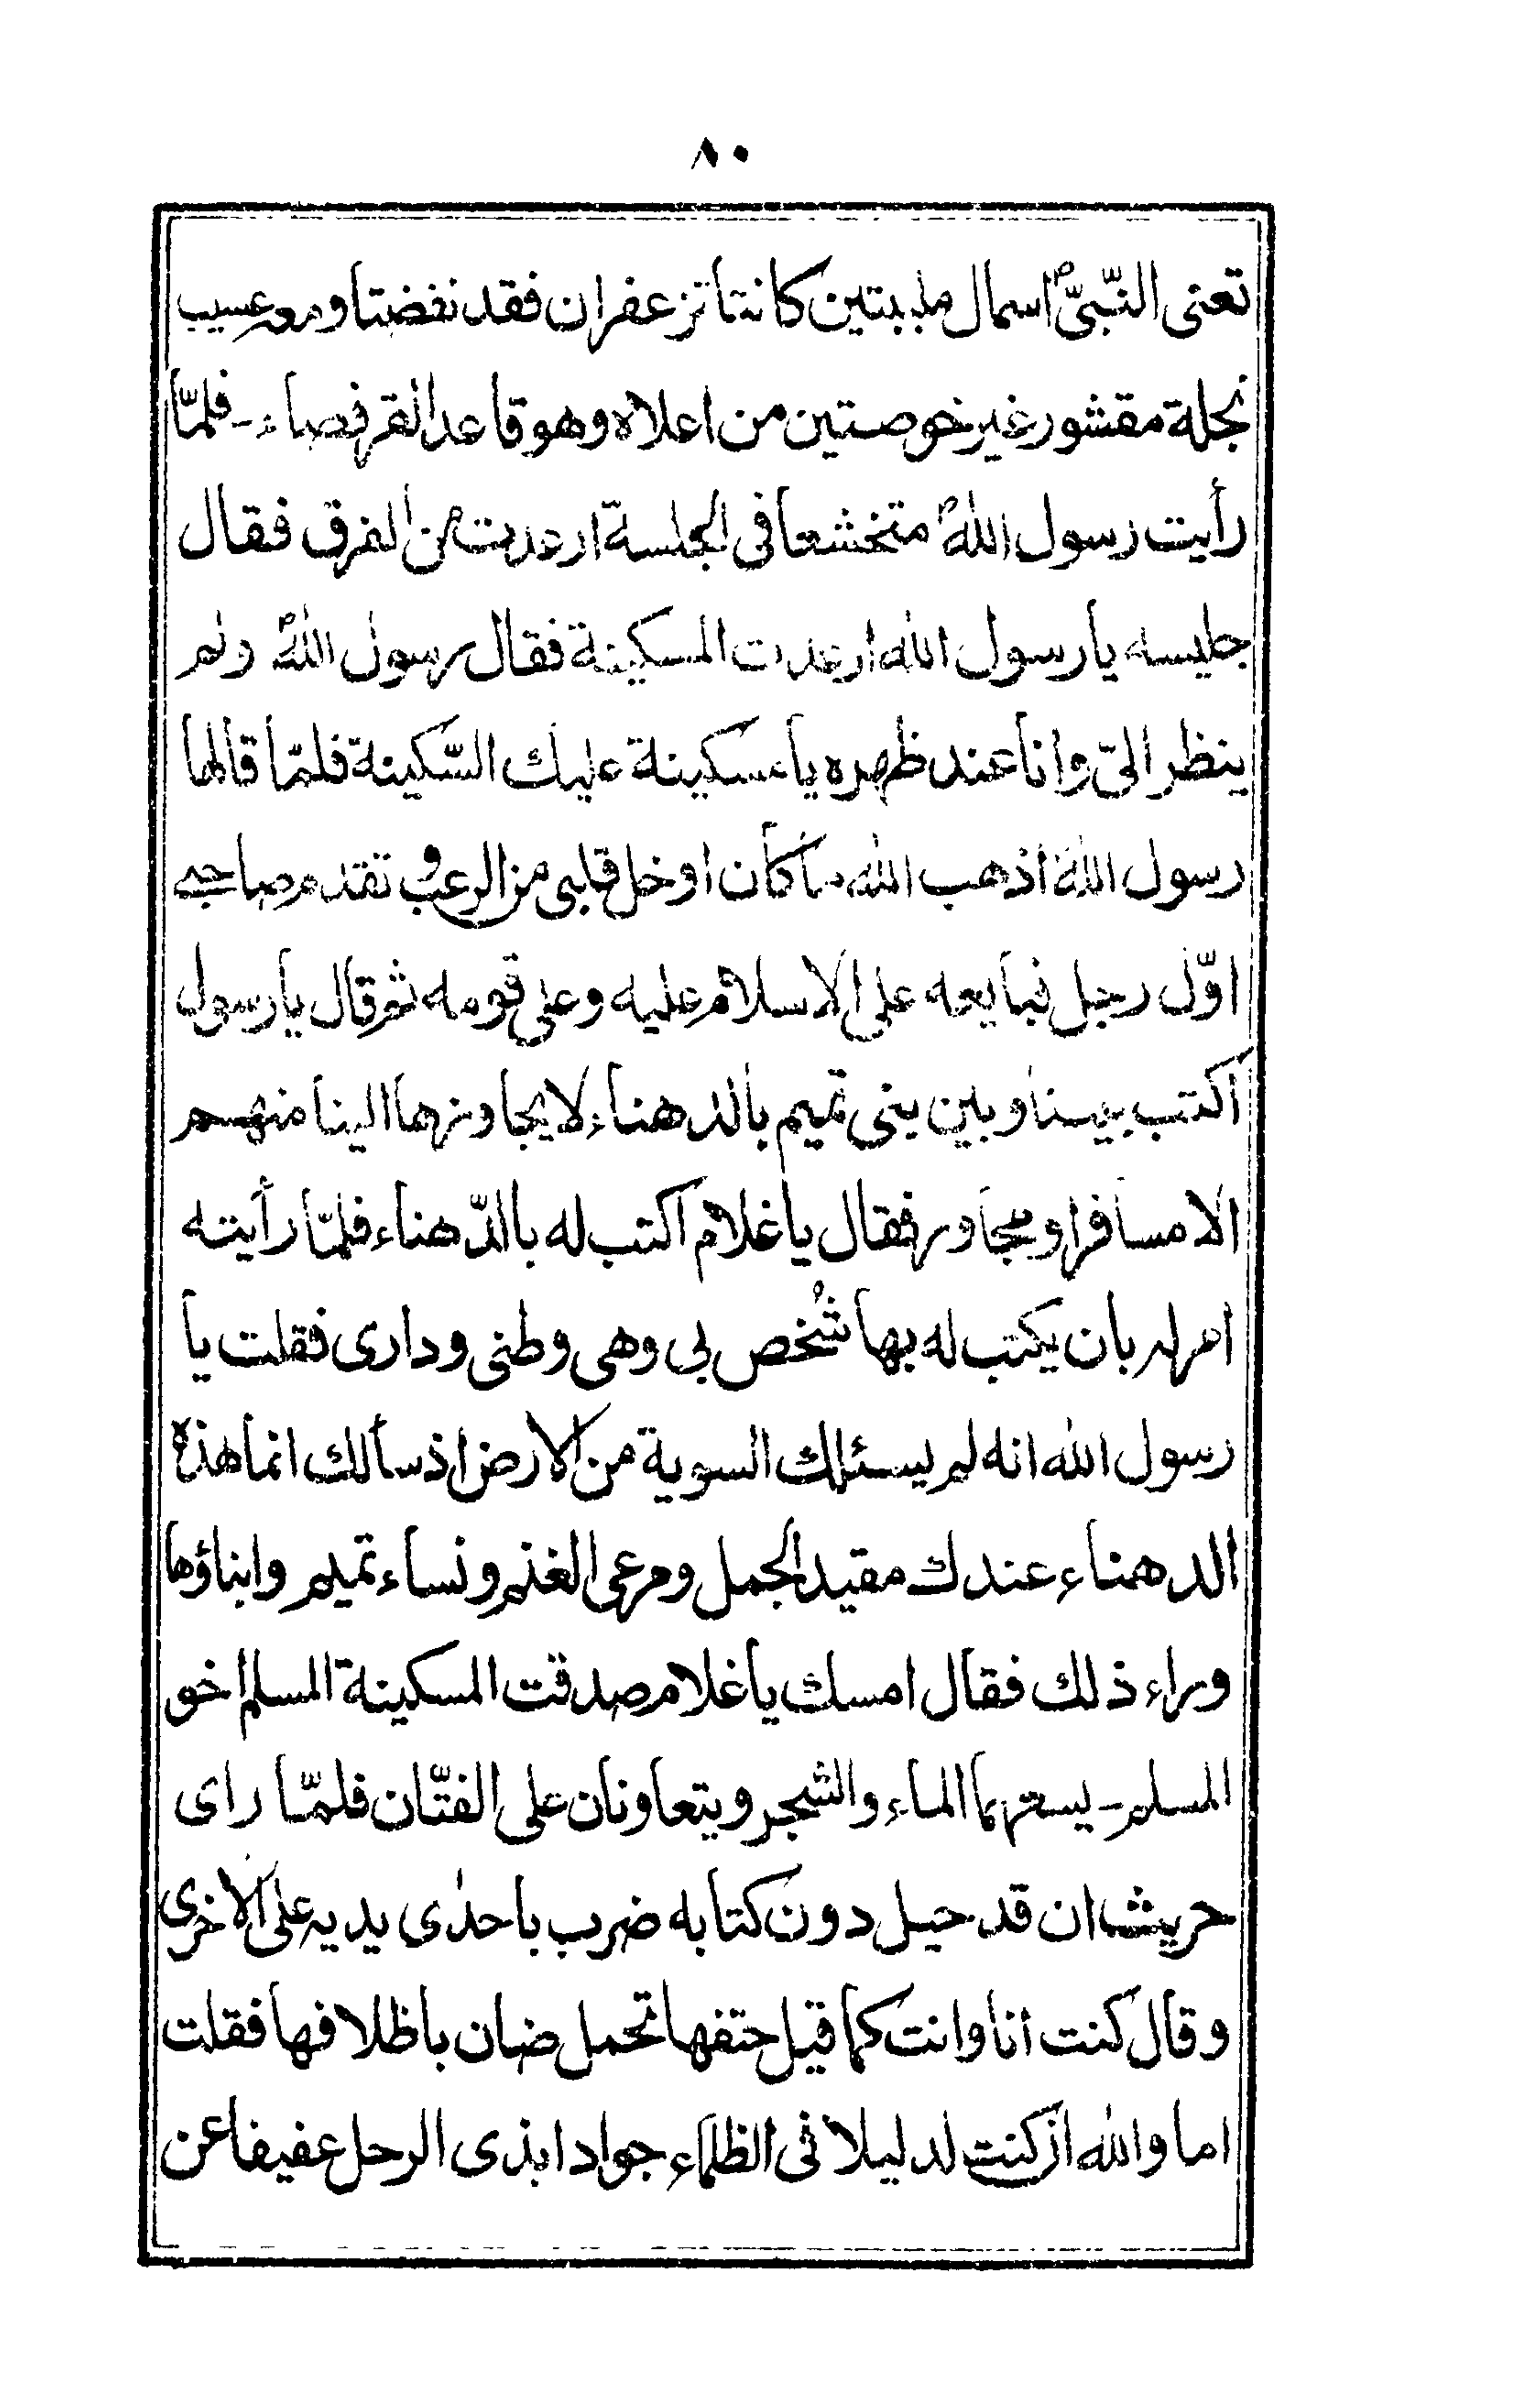 ٨٠
تعنى النّبىّؐ اسمال ملببتين كانتا تزعفران فقد نفضتا ومعه عسيب
نجلة مقشور غير خوصتين من اعلاه وهو قاعد القرفصاء - فلمّا
رأيت رسول اللهؐ متخشعا فى الجلسة ارعدت من الفرق فقال
جليسه يا رسول الله ارعدت المسكينة فقال رسول اللهؐ ولم
ينظر الىّ وانا عند ظهره يا مسكينة عليك السّكينة فلمّا قالها
رسول اللهؐ اذهب الله ما كان اوخل قلبى من الرعب و تقدم صاحبى
اوّل رجل فبايعه على الاسلام عليه وعلى قومه ثم قال يا رسول
اكتب بيننا وبين بنى تميم بالدهناء لا يجاوزها الينا منهم
الا مسافر او مجاور فقال يا غلام اكتب له باالدّهناء فلمّا رأيته
امر له بان يكتب له بها شُخص بى وهى وطنى ودارى فقلت يا
رسول الله انه لم يسئلك السوية من الارض اذ سألك انما هذه
الدهناء عندك مقيد الجمل ومرعى الغنم ونساء تميم وابناؤها
وراء ذلك فقال امسك يا غلام صدقت المسكينة المسلم اخو
المسلم - يسعهما الماء والشجر ويتعاونان على الفتّان فلمّا راى
حريث ان قد حيل دون كتابه ضرب باحدٰى يديه على الاخرى
وقال كنت انا وانت كما قيل حتفها تحمل ضان باظلافها فقلت
اما والله ان كنت لدليلا فى الظلماء جوادا بذى الرحل عفيفا عن